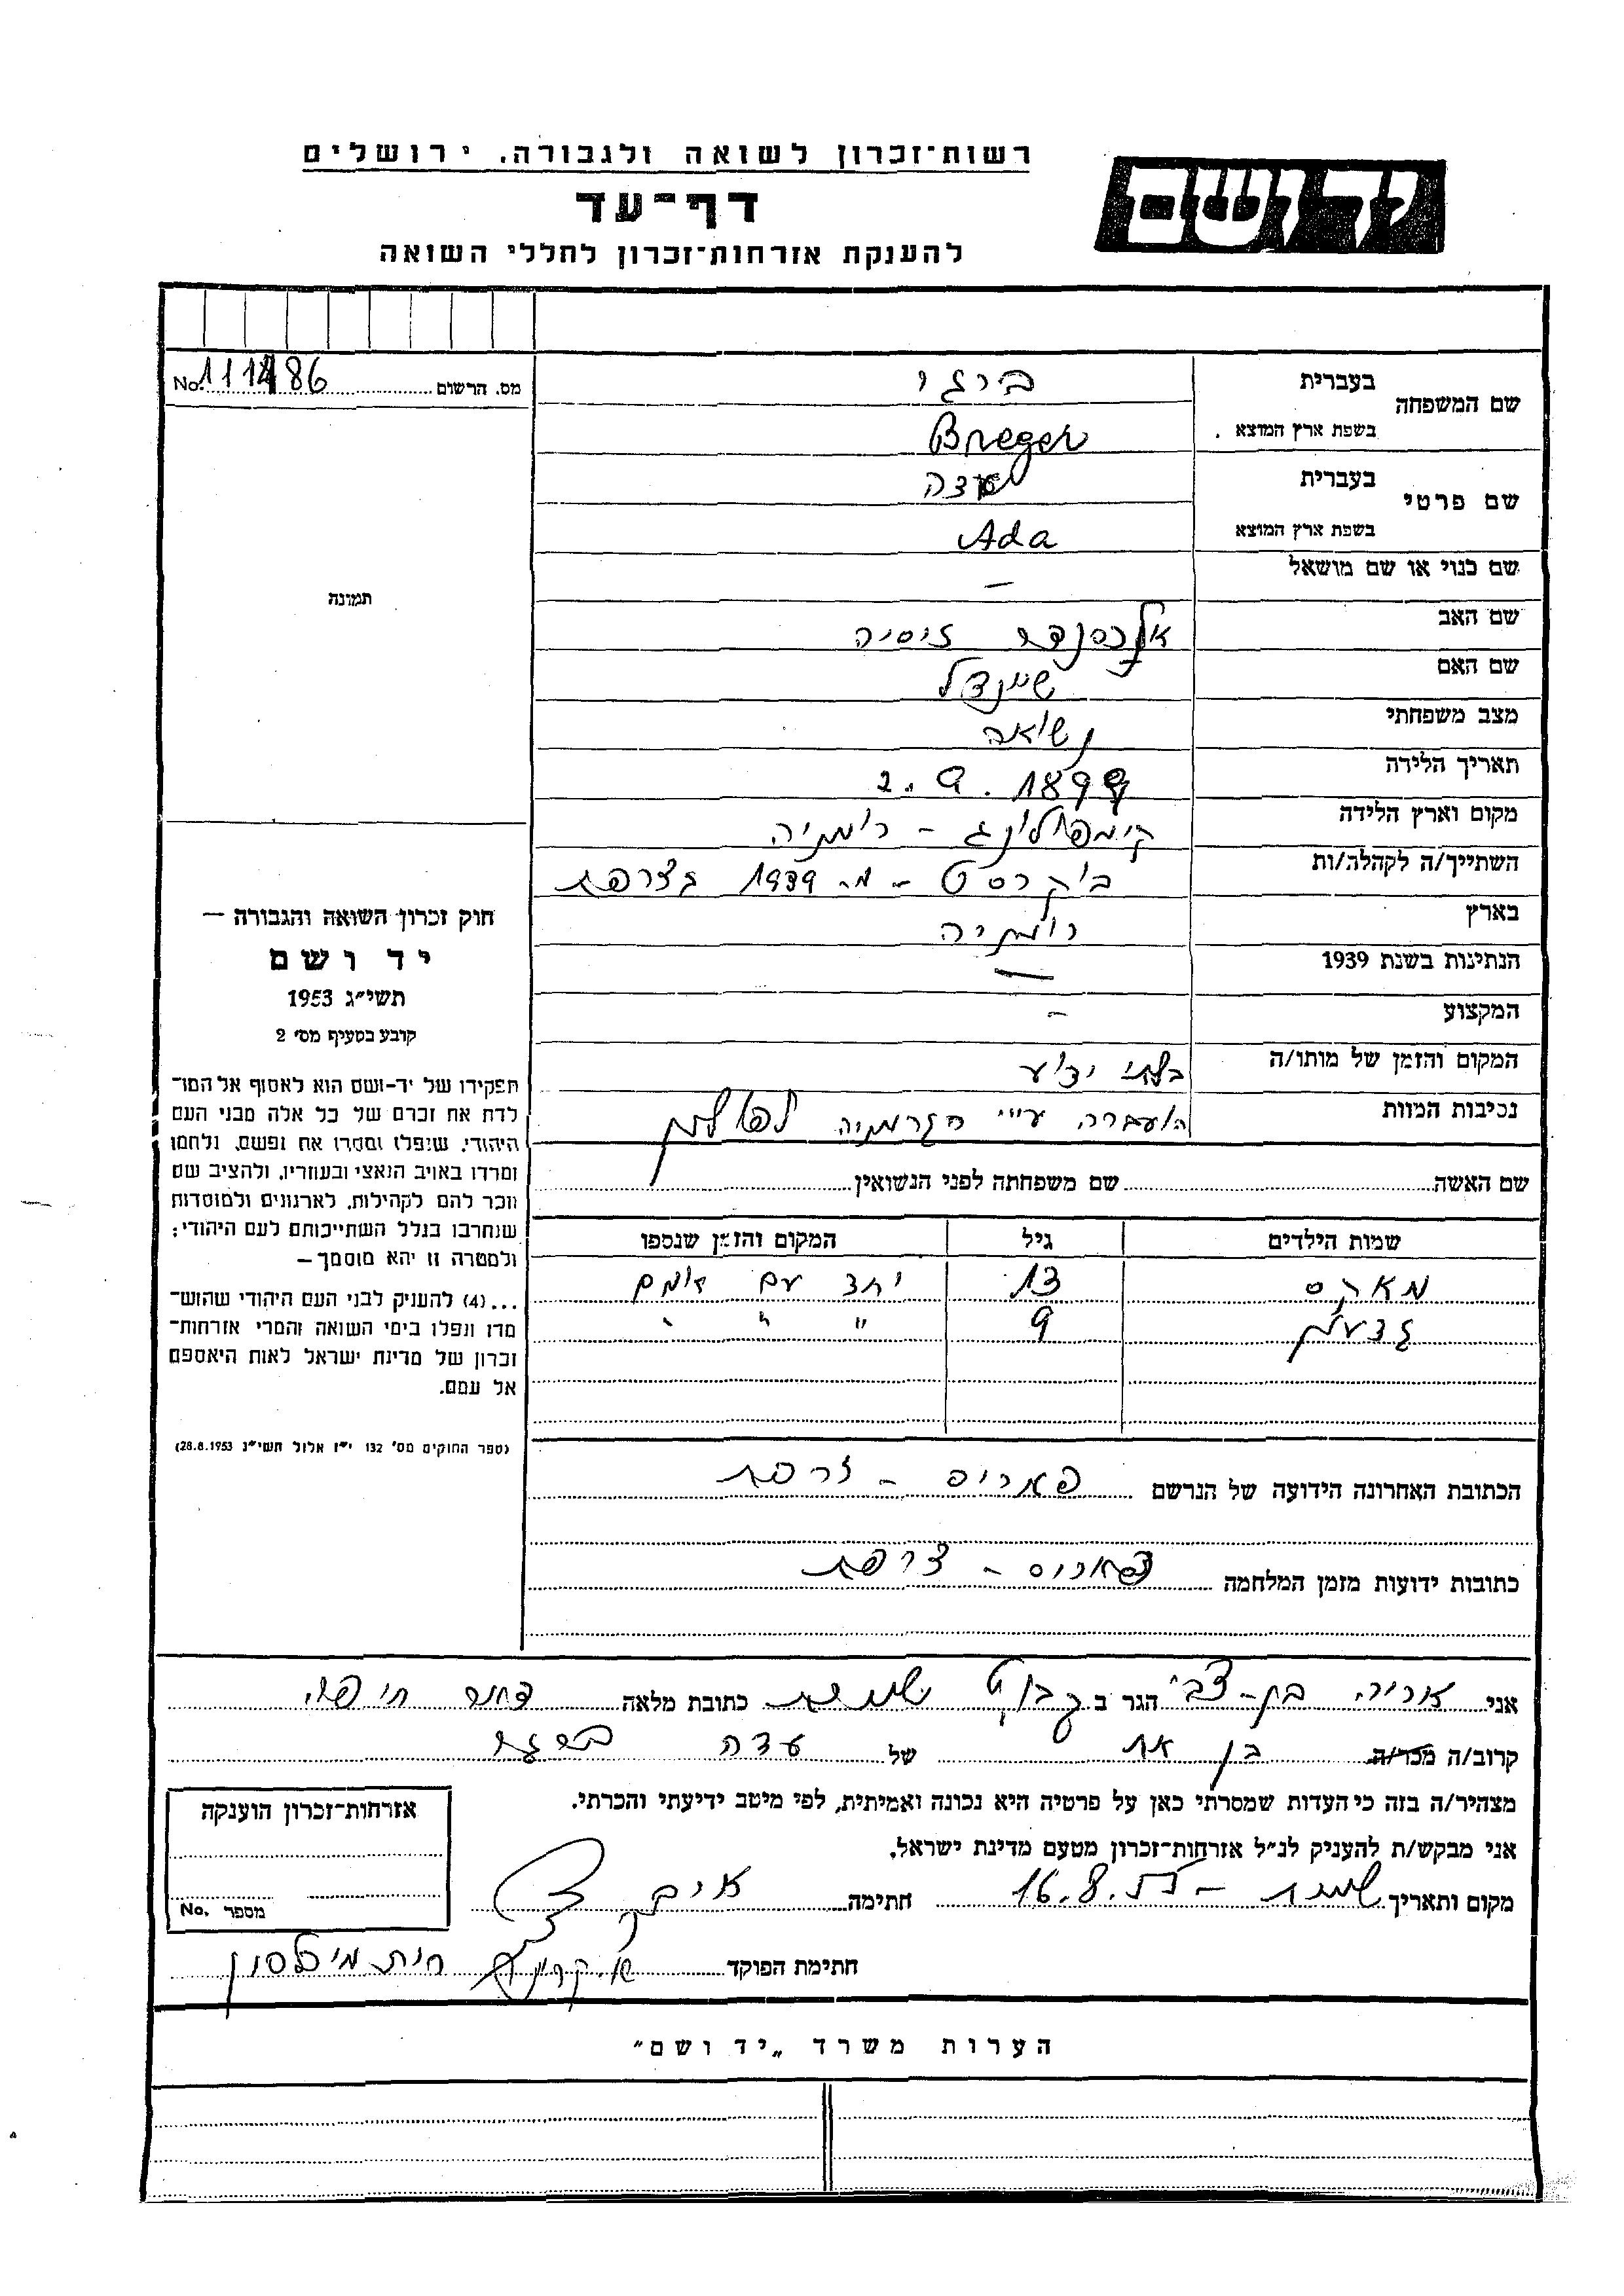 רשות־זכרון לשואה ולגבורה. ירושלים
יד ושם
דף־עד
להענקת אזרחות־זכרון לחללי השואה
מס. הרשום 111486 No.
שם המשפחה
בעברית
ברגר
בשפת ארץ המוצא
Breger
שם פרטי
בעברית
עדה
בשפת ארץ המוצא
Ada
שם כנוי או שם מושאל —
שם האב אלכסנדר זיסיה
שם האם שיינדל
מצב משפחתי נשואה
תאריך הלידה 2.9.1899
מקום וארץ הלידה קימפולונג – רומניה
השתייך/ה לקהלה/ות בוקרסט – מ- 1939 בצרפת
בארץ רומניה
הנתינות בשנת 1939 —
המקצוע –
המקום והזמן של מותו/ה בלתי ידוע
נסיבות המוות הועברה ע״י הגרמניה לפולין
תמונה
חוק זכרון השואה והגבורה —
יד ושם
תשי״ג 1953
קובע בסעיף מס׳ 2
תפקידו של יד-ושם הוא לאסוף אל המו־
לדת את זכרם של כל אלה מבני העם
היהודי, שנפלו ומסרו את נפשם, נלחמו
ומרדו באויב הנאצי ובעוזריו, ולהציב שם
וזכר להם לקהילות, לארגונים ולמוסדות
שנחרבו בגלל השתייכותם לעם היהודי;
ולמטרה זו יהא מוסמך—
...(4) להעניק לבני העם היהודי שהוש־
מדו ונפלו בימי השואה והמרי אזרחות־
זכרון של מדינת ישראל לאות היאספם
אל עמם.
(ספר החוקים מס׳ 132 י״ז אלול תשי״ג 28.8.1953)
שם האשה שם משפחתה לפני הנשואין
שמות הילדים גיל המקום והזמן שנספו
מארקס 13 יחד עם אמם
גדעון 9 " " "
הכתובת האחרונה הידועה של הנרשם פאריס – צרפת
כתובות ידועות מזמן המלחמה פאריס – צרפת
אני אריה בן-צבי הגר ב קבוץ שמרת כתובת מלאה דואר חיפה
קרוב/ה מכר/ה בן אח של עדה ברגר
מצהיר/ה בזה כי העדות שמסרתי כאן על פרטיה היא נכונה ואמיתית, לפי מיטב ידיעתי והכרתי.
אני מבקש/ת להעניק לנ״ל אזרחות־זכרון מטעם מדינת ישראל.
מקום ותאריך שמרת – 16.8.55 חתימה
חתימת הפוקד
אזרחות־זכרון הוענקה
מספר No.
הערות משרד „יד ושם״